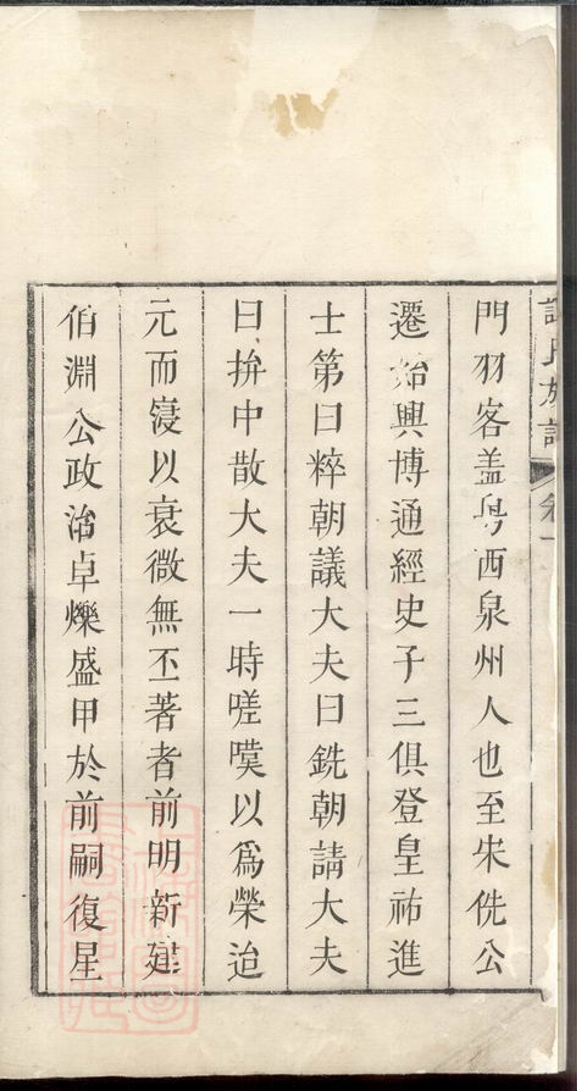 氏族譜 卷一
門羽客盖粤西泉州人也至宋侁公
遷始興博通經史子三俱登皇祐進
士第曰粹朝議大夫曰銑朝請大夫
曰拚中散大夫一時嗟嘆以爲榮迨
元而寖以衰微無丕著者前明新建
伯淵公政治卓爍盛甲於前嗣復星